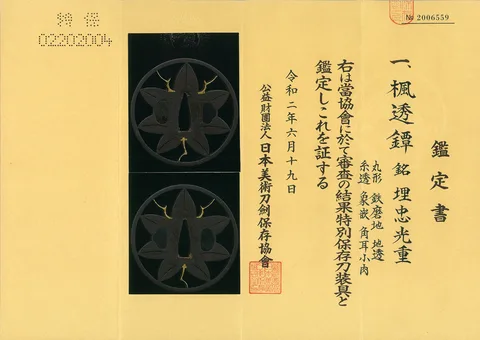 № 2006559
鑑定書
一、楓透鐔 銘 埋忠光重
丸形 鉄磨地 地透
糸透 象嵌 角耳小肉
右は當協會に於て審査の結果特別保存刀装具と
鑑定しこれを証する
令和二年六月十九日
公益財團法人 日本美術刀劍保存協會
特保
02202004